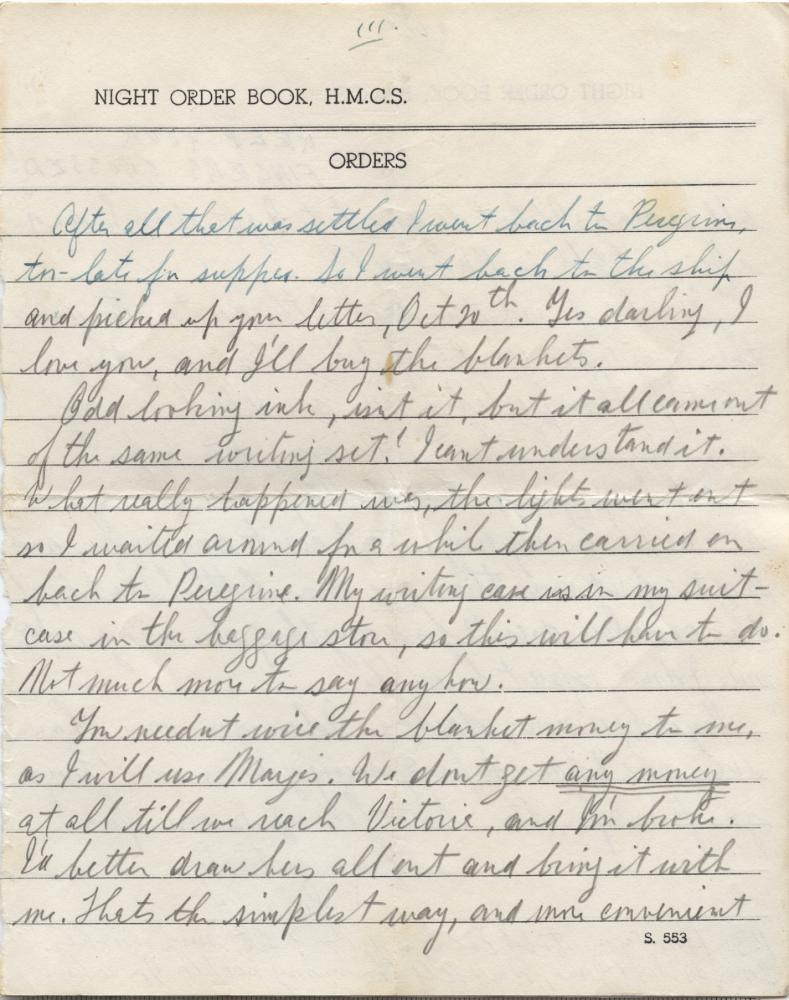 111.
NIGHT ORDER BOOK, H.M.C.S.
ORDERS
After all that was settled I went back to Peregrine,
too-late for supper. So I went back to the ship
and picked up your letter, Oct 20th. Yes darling, I
love you, and I'll buy the blankets.
Odd looking ink, isnt it, but it all came out
of the same writing set! I cant understand it.
What really happened was, the lights went out
so I waited around for a while then carried on
back to Peregrine. My writing case is in my suit-
case in the baggage store, so this will have to do.
Not much more to say anyhow.
You neednt wire the blanket money to me,
as I will use Marjes. We dont get any money
at all till we reach Victoria, and I'm broke.
I'd better draw hers all out and bring it with
me. Thats the simplest way, and more convenient
S. 553